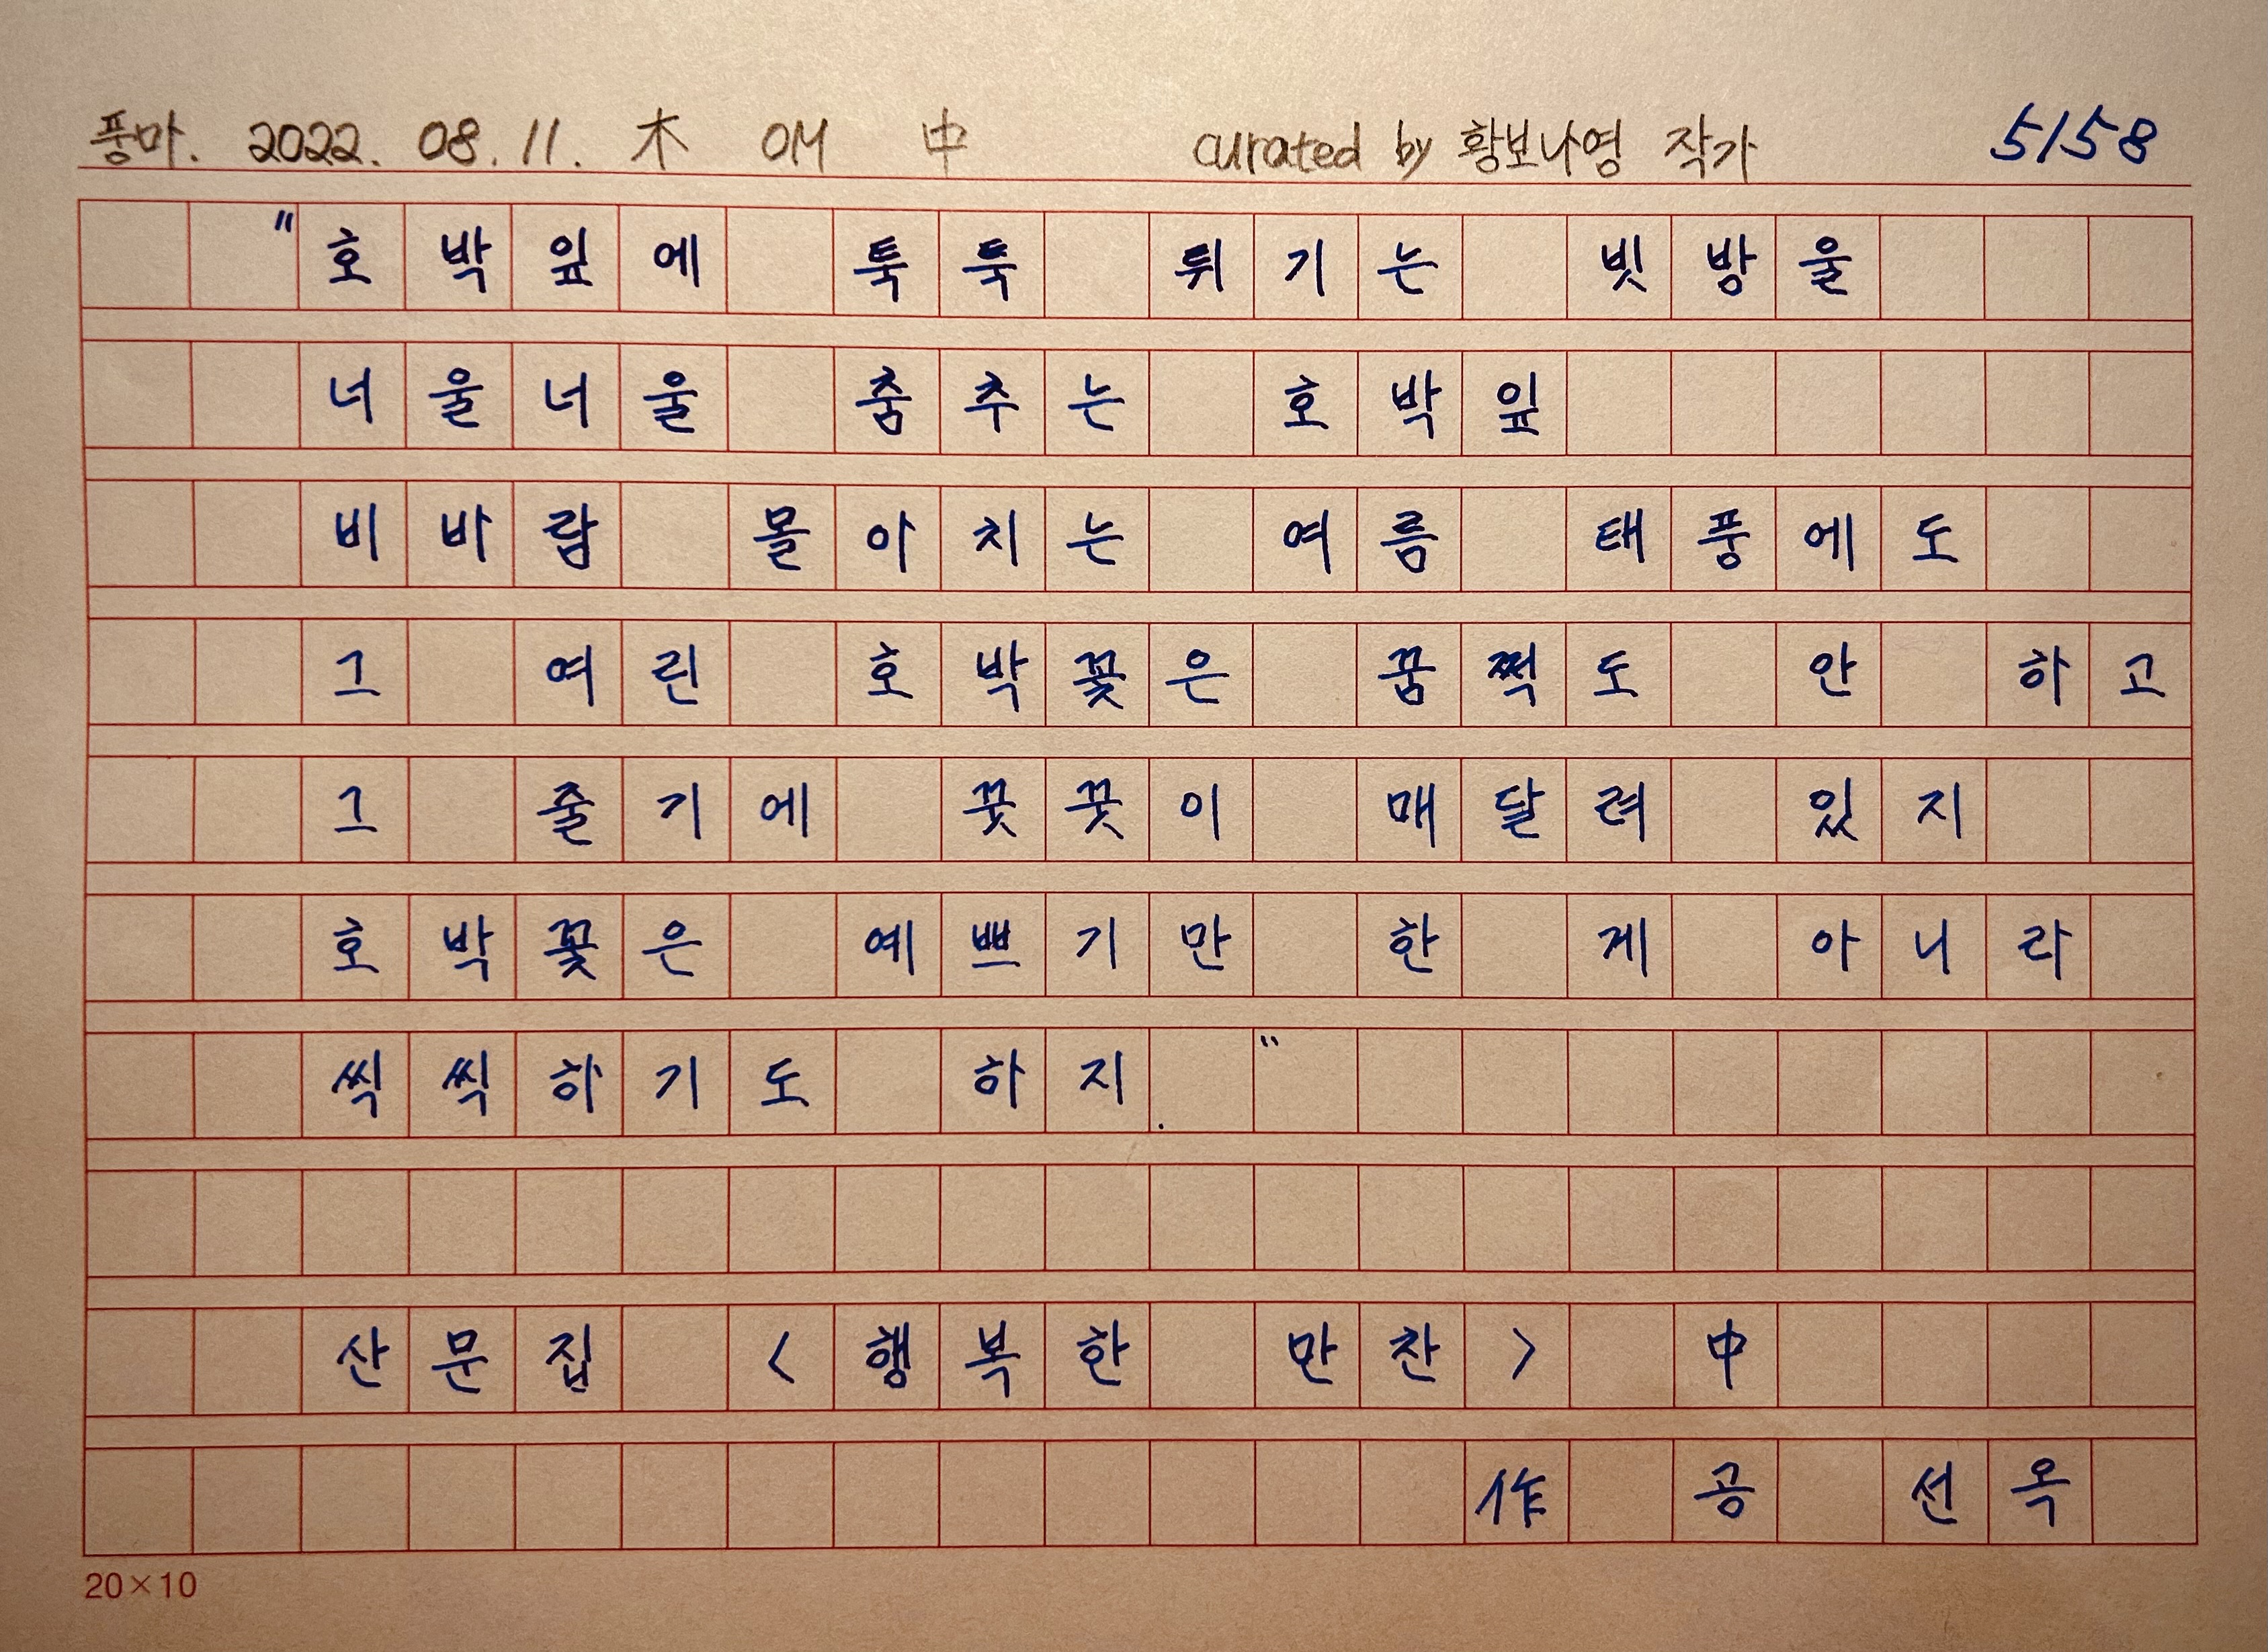 풍마. 2022. 08. 11. 木 OM 中 curated by 황보나영 작가 5158
"호박잎에 툭툭 튀기는 빗방울
너울너울 춤추는 호박잎
비바람 몰아치는 여름 태풍에도
그 여린 호박꽃은 꿈쩍도 안 하고
그 줄기에 꿋꿋이 매달려 있지
호박꽃은 예쁘기만 한 게 아니라
씩씩하기도 하지."
산문집 <행복한 만찬> 中
作 공 선옥
20×10